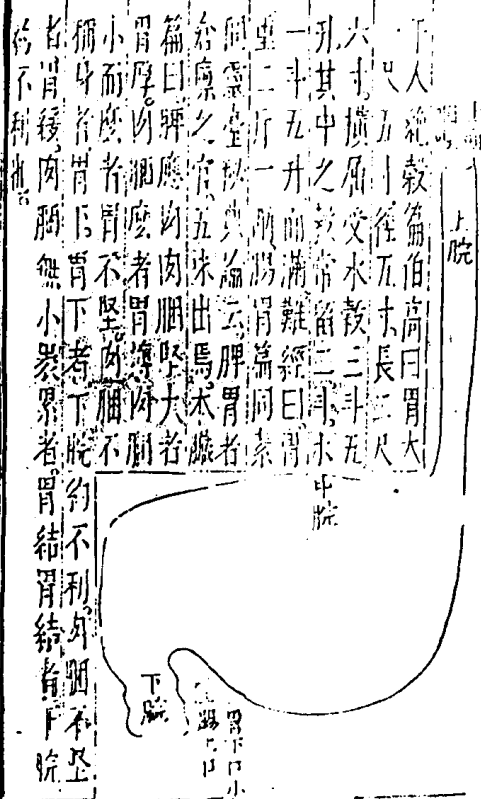 上脘
人絶穀篇伯高曰胃大
尺五寸徑五寸長二尺
六寸橫屈受水穀三斗五
升其中之穀常留二斗水
一斗五升而滿難經曰胃
重二斤一兩腸胃篇同素
問靈秘典論云脾胃者
倉廩之官五味出焉本臓
篇曰脾應肉肉䐃堅大者
胃厚肉䐃麼者胃薄肉䐃
小而麼者胃不堅肉䐃不
稱身者胃下胃下者下脘約不利肉䐃不堅
者胃緩肉䐃無小裹累者胃結胃結者下脘
約不利也
中脘
胃下口小
腸上口
下脘